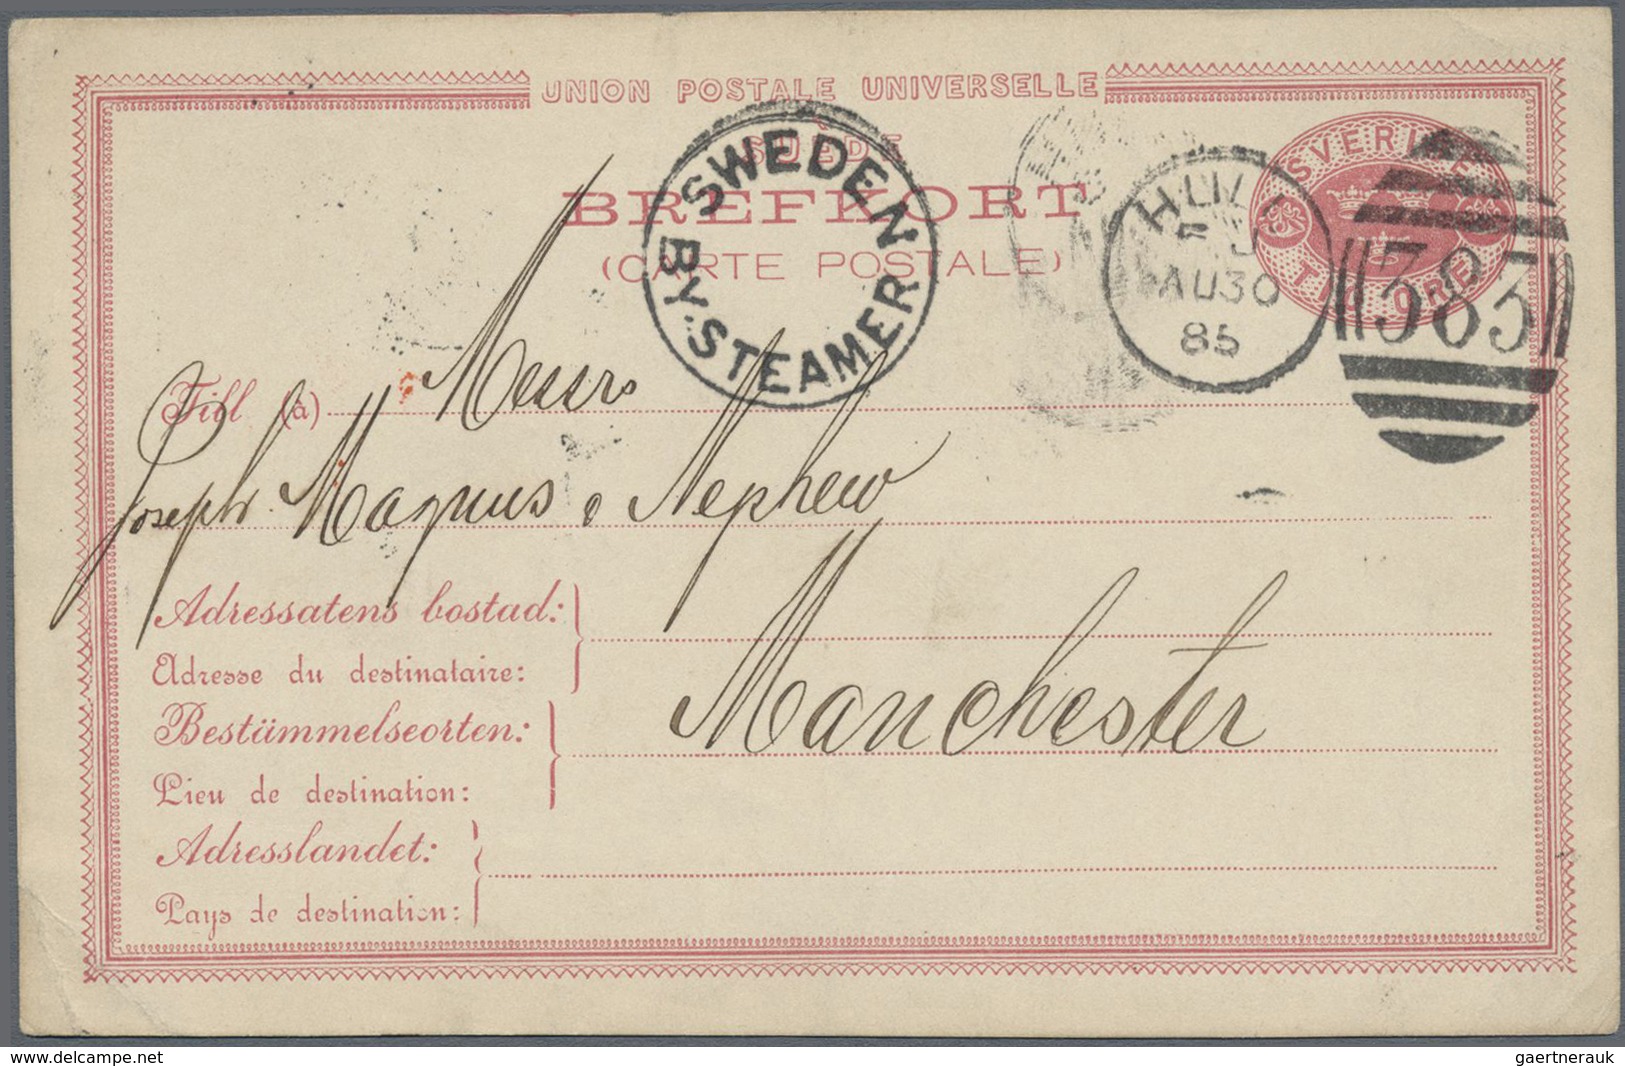 UNION POSTALE UNIVERSELLE
SUÈDE
BREFKORT
(CARTE POSTALE)
SWEDEN
BY. STEAMER
HULL
AU30
85
383
SVERIGE
TIO ÖRE
Till (à) Messrs
Joseph Magnus & Nephew
Adressatens bostad:
Adresse du destinataire:
Manchester
Bestämmelseorten:
Lieu de destination:
Adresslandet:
Pays de destination:
www.delcampe.net
gaertnerauk